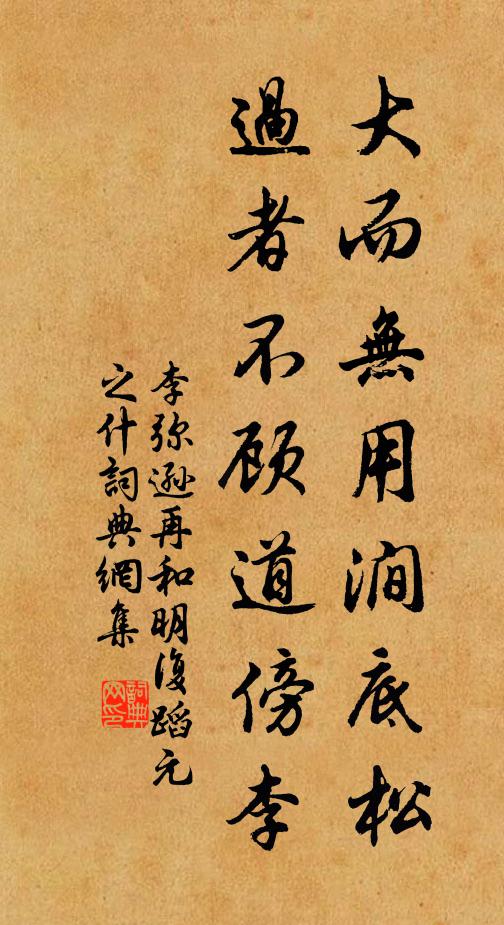 大而無用澗底松
過者不顾道傍李
李弥遜再和明復蹈元
之什詞典網集
詞典
网印